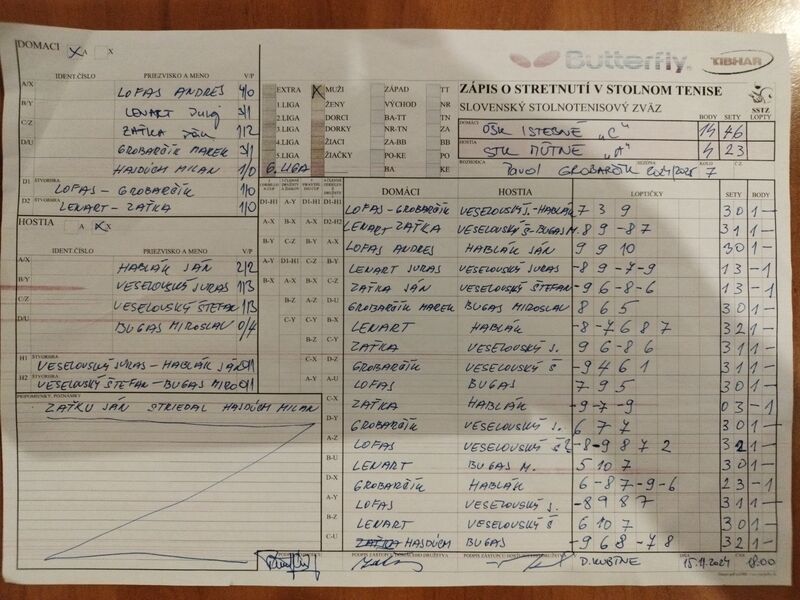 DOMACI X A X
IDENT.ČÍSLO PRIEZVISKO A MENO V/P
A/X LOFAS ANDREJ 4/0
B/Y LENART JURAJ 3/1
C/Z ZAŤKA JÁN 1/2
GROBARČÍK MAREK 3/1
HAJDÚCH MILAN 1/0
D1 ŠTVORHRA LOFAS - GROBARČÍK 1/0
D2 ŠTVORHRA LENART - ZAŤKA 1/0
HOSTIA A X X
IDENT.ČÍSLO PRIEZVISKO A MENO V/P
A/Y HABLÁK JÁN 2/2
B/X VESELOVSKÝ JURAS 1/3
C/Z VESELOVSKÝ ŠTEFAN 1/3
D/U BUGAS MIROSLAV 0/4
H1 ŠTVORHRA VESELOVSKÝ JURAS - HABLÁK JÁN 0/1
H2 ŠTVORHRA VESELOVSKÝ ŠTEFAN - BUGAS MIRO 0/1
PRIPOMIENKY, POZNÁMKY
ZAŤKU JÁN STRIEDAL HAJDÚCH MILAN
Butterfly TIBHAR
EXTRA X MUŽI ZÁPAD TT
1.LIGA ŽENY VÝCHOD NR
2.LIGA DORCI BA-TT TN
3.LIGA DORKY NR-TN ZA
4.LIGA ŽIACI ZA-BB BB
5.LIGA ŽIAČKY PO-KE PO
6. LIGA BA KE
ZÁPIS O STRETNUTÍ V STOLNOM TENISE
SLOVENSKÝ STOLNOTENISOVÝ ZVÄZ
SSTZ
BODY SETY LOPTY
DOMÁCI OŠK ISTEBNÉ "C" 14 46
HOSTIA STK MÚTNE "A" 4 23
ROZHODCA Pavol GROBARČÍK SEZÓNA KOLO 7 Č.Z.
DOMÁCI HOSTIA LOPTIČKY SETY BODY
D1-H1 A-Y D1-H1 D1-H1 LOFAS - GROBARČÍK VESELOVSKÝ J. - HABLÁK 7 3 9 3 0 1 -
A-X B-X A-X D2-H2 LENART ZAŤKA VESELOVSKÝ Š - BUGAS M. -8 9 -8 7 3 1 1 -
B-Y C-Z B-Y A-X LOFAS ANDREJ HABLÁK JÁN 9 9 10 3 0 1 -
A-Y D1-H1 C-Z B-Y LENART JURAS VESELOVSKÝ JURAS -8 9 -7 -9 1 3 - 1
B-X A-X B-X C-Z ZAŤKA JÁN VESELOVSKÝ ŠTEFAN -9 6 -8 -6 1 3 - 1
B-Z A-Z D-U GROBARČÍK MAREK BUGAS MIROSLAV 8 6 5 3 0 1 -
C-Y C-Y B-X LENART HABLÁK -8 -7 6 8 7 3 2 1 -
B-Z C-Y ZAŤKA VESELOVSKÝ J. 9 6 -8 6 3 1 1 -
C-X D-Z GROBARČÍK VESELOVSKÝ Š -9 4 6 1 3 1 1 -
A-Y A-U LOFAS BUGAS 7 9 5 3 0 1 -
C-X ZAŤKA HABLÁK -9 -7 -9 0 3 - 1
D-Y GROBARČÍK VESELOVSKÝ J. 6 7 7 3 0 1 -
A-Z LOFAS VESELOVSKÝ Š -8 -9 8 7 2 3 2 1 -
B-U LENART BUGAS M. 5 10 7 3 0 1 -
D-X GROBARČÍK HABLÁK 6 -8 7 -9 -6 2 3 - 1
A-Y LOFAS VESELOVSKÝ J. -8 9 8 7 3 1 1 -
B-Z LENART VESELOVSKÝ Š 6 10 7 3 0 1 -
C-U ZAŤKA HAJDÚCH BUGAS -9 6 8 -7 8 3 2 1 -
D. KUBÍNE 15.11.2024 18:00